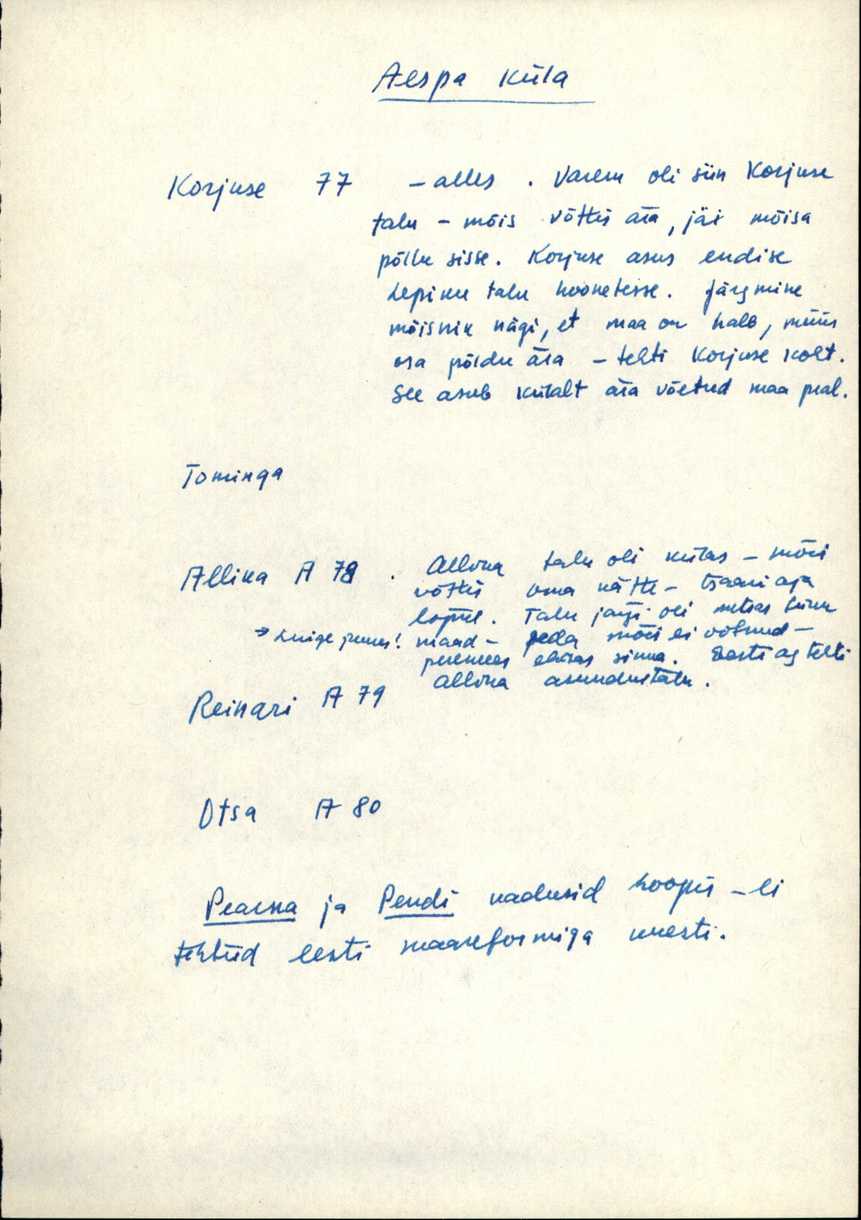 Aespa küla
Korjuse 77 - alles. Varem oli siin Korjuse
talu - mõis võttis ära, jäi mõisa
põllu sisse. Korjuse asus endise
Lepiku talu hoonetesse. Järgmine
mõisnik nägi, et maa on halb, müüs
osa põldu ära - tehti Korjuse koht.
See asub külalt ära võetud maa peal.
Tominga
Allika A 78. Allika talu oli külas - mõis
võttis oma kätte - tsaari aja
lõpul. Talu järgi oli metsas
→ Luige juures! maad - seda mõis ei võtnud -
peremees ehitas sinna. Eesti aj tehti
Allika asundustalu.
Reinari A 79
Otsa A 80
ja Pendi kadusid hoopis - ei
tehtud eesti maareformiga uuesti.